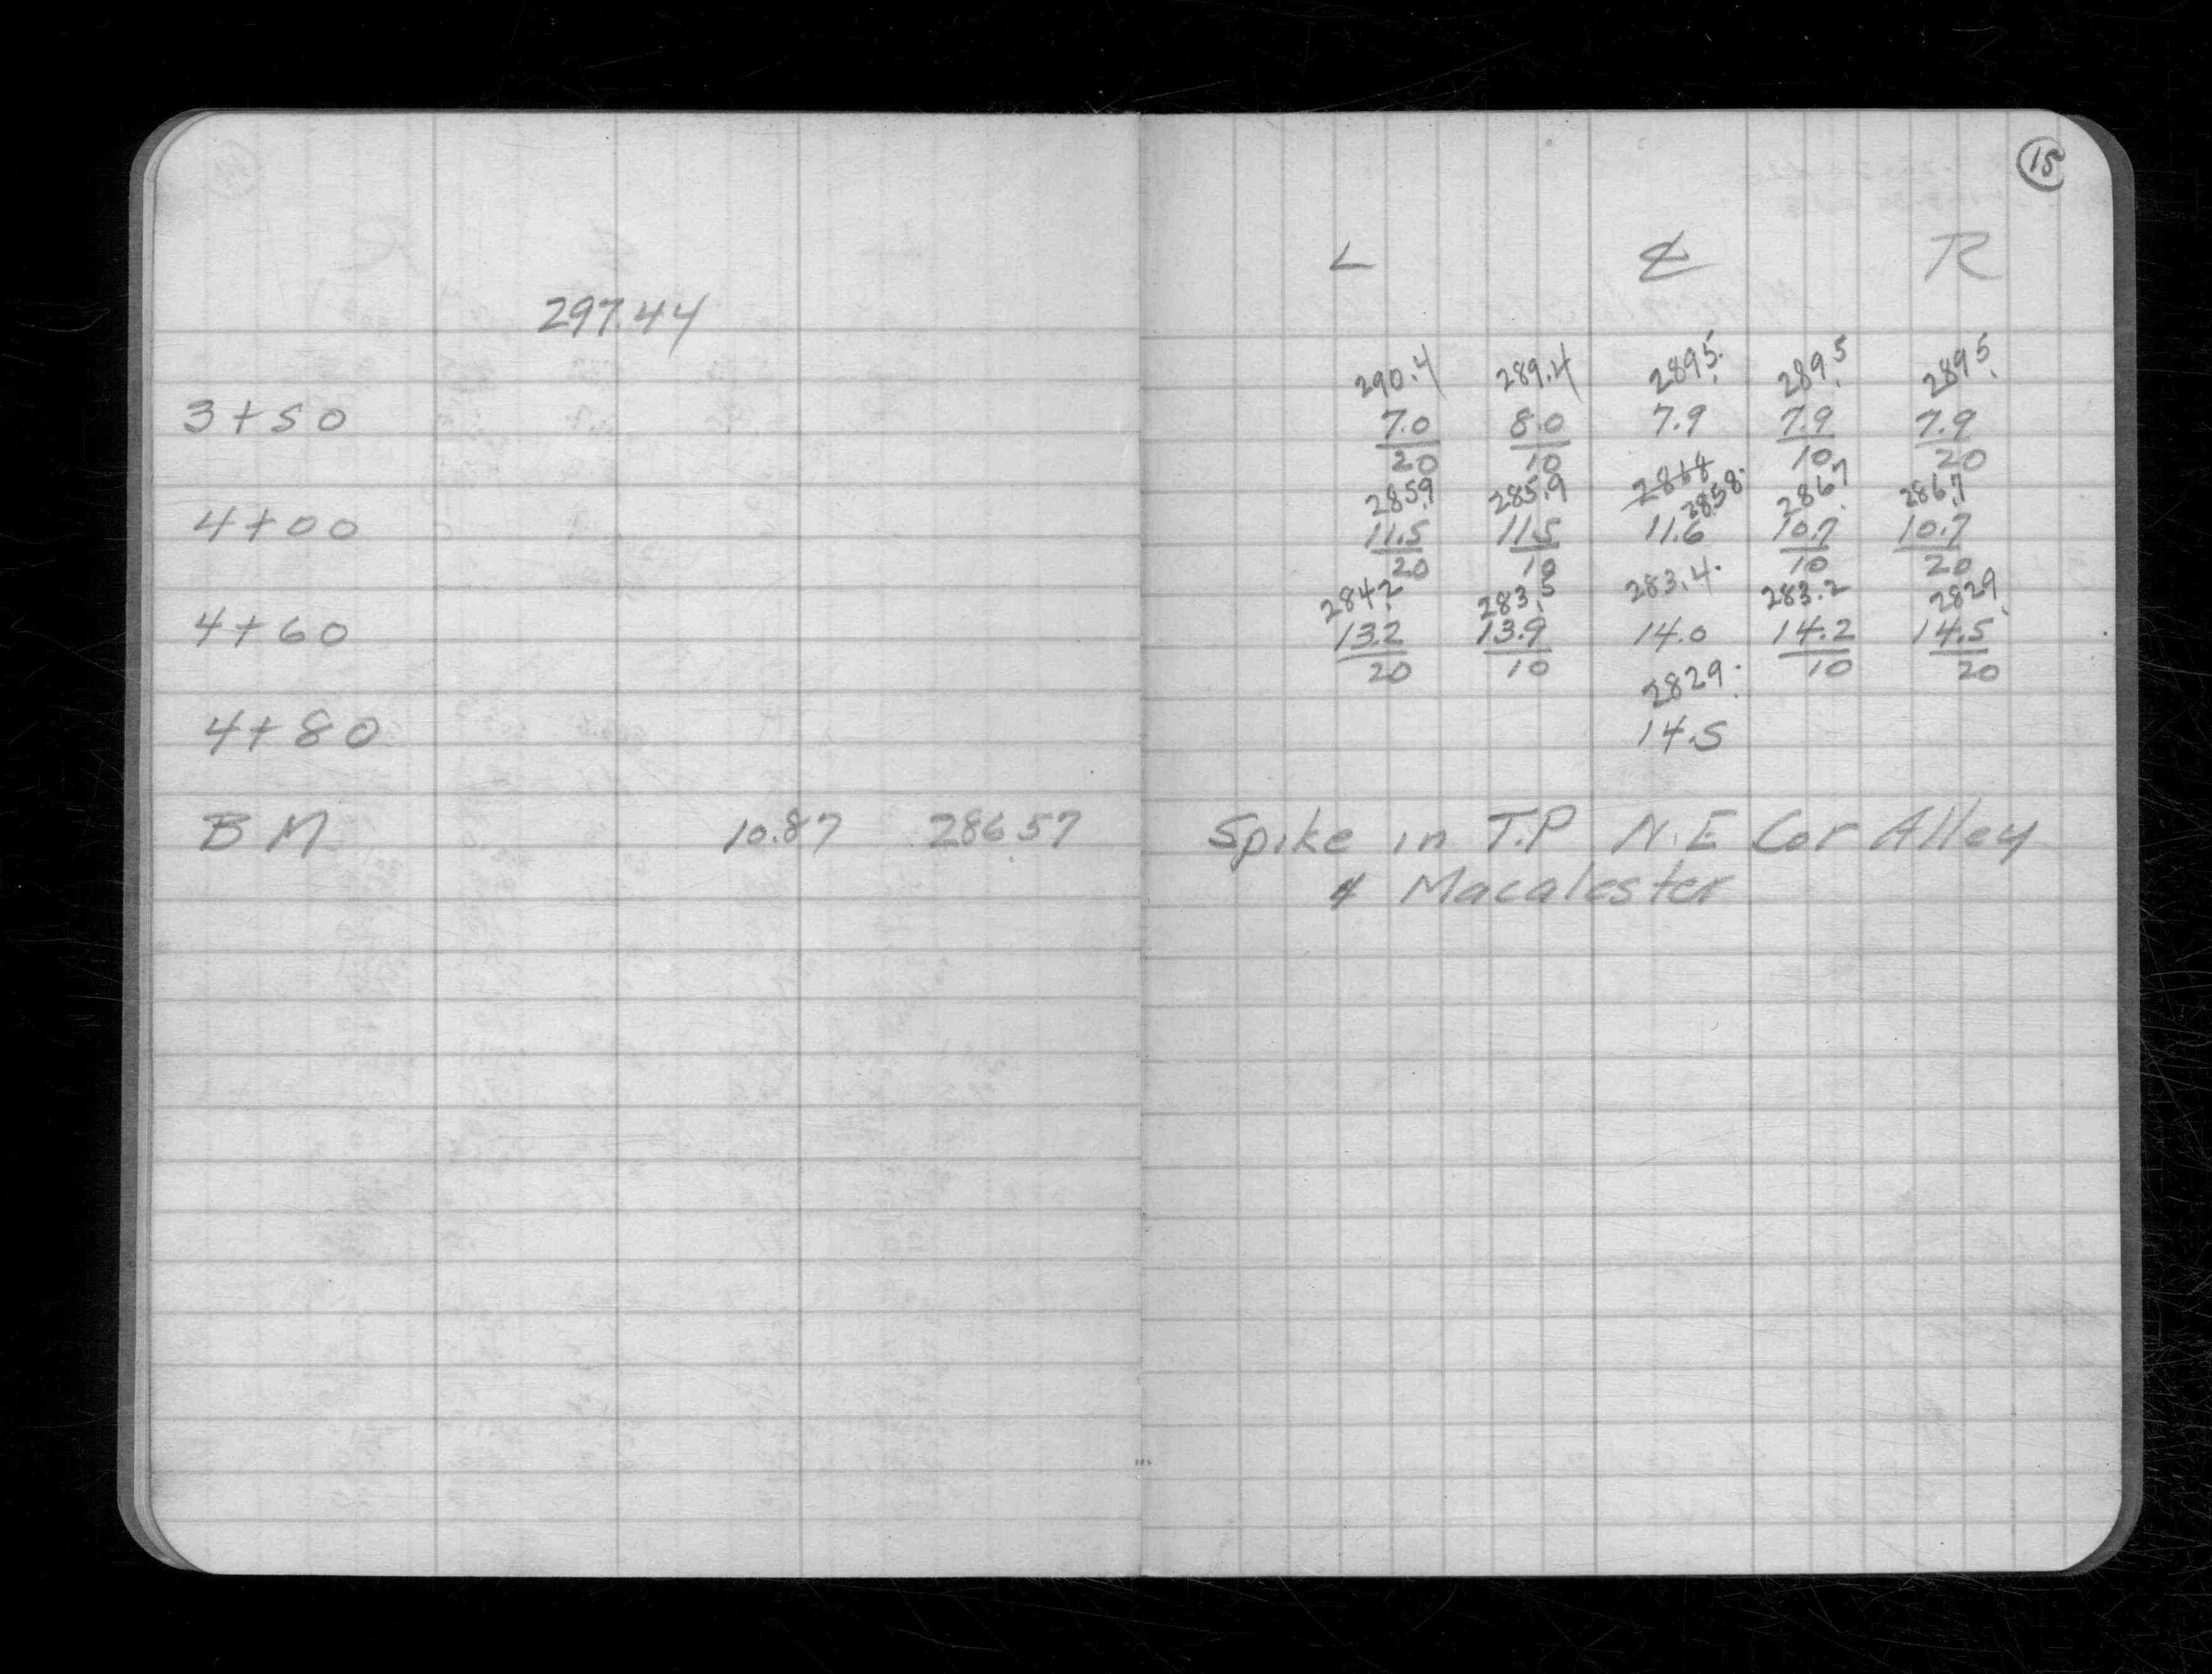 15
L ℄ R
297.44
290.4 289.4 289.5 289.5 289.5
3+50 7.0 8.0 7.9 7.9 7.9
20 10 10 20
285.9 285.9 286.8 285.8 286.7 286.7
4+00 11.5 11.5 11.6 10.7 10.7
20 10 10 20
284.2 283.5 283.4 283.2 282.9
4+60 13.2 13.9 14.0 14.2 14.5
20 10 10 20
282.9
4+80 14.5
BM 10.87 286.57 Spike in T.P N.E Cor Alley
& Macalester